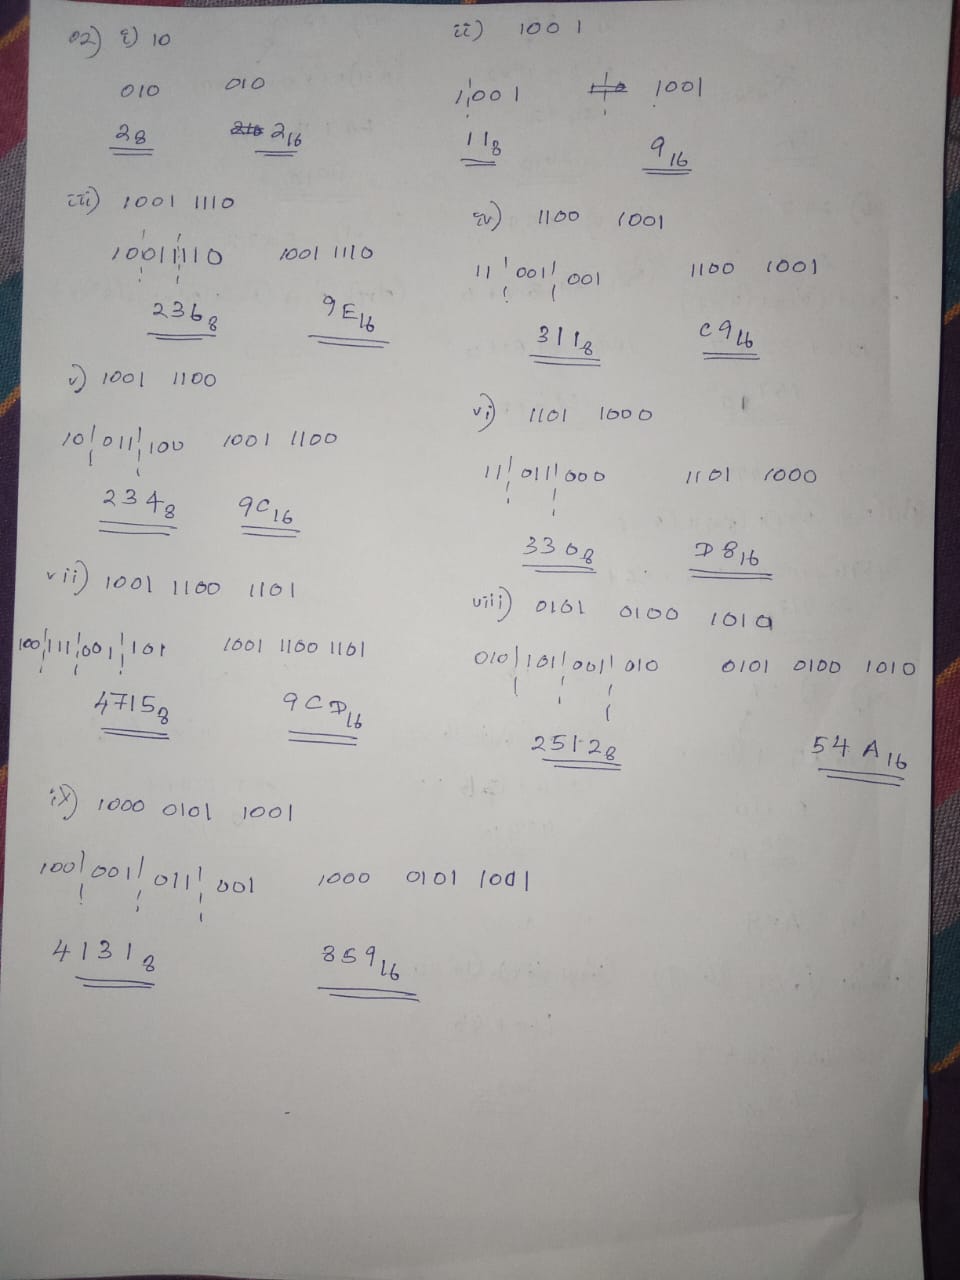 02) i) 10
010 010
2₈ 2₁₆
ii) 1001
1 001 1001
11₈ 9₁₆
iii) 1001 1110
10 011 110 1001 1110
236₈ 9E₁₆
iv) 1100 1001
11 001 001 1100 1001
311₈ C9₁₆
v) 1001 1100
10 011 100 1001 1100
234₈ 9C₁₆
vi) 1101 1000
11 011 000 1101 1000
330₈ D8₁₆
vii) 1001 1100 1101
100 111 001 101 1001 1100 1101
4715₈ 9CD₁₆
viii) 0101 0100 1010
010 101 001 010 0101 0100 1010
2512₈ 54A₁₆
ix) 1000 0101 1001
100 001 011 001 1000 0101 1001
4131₈ 859₁₆